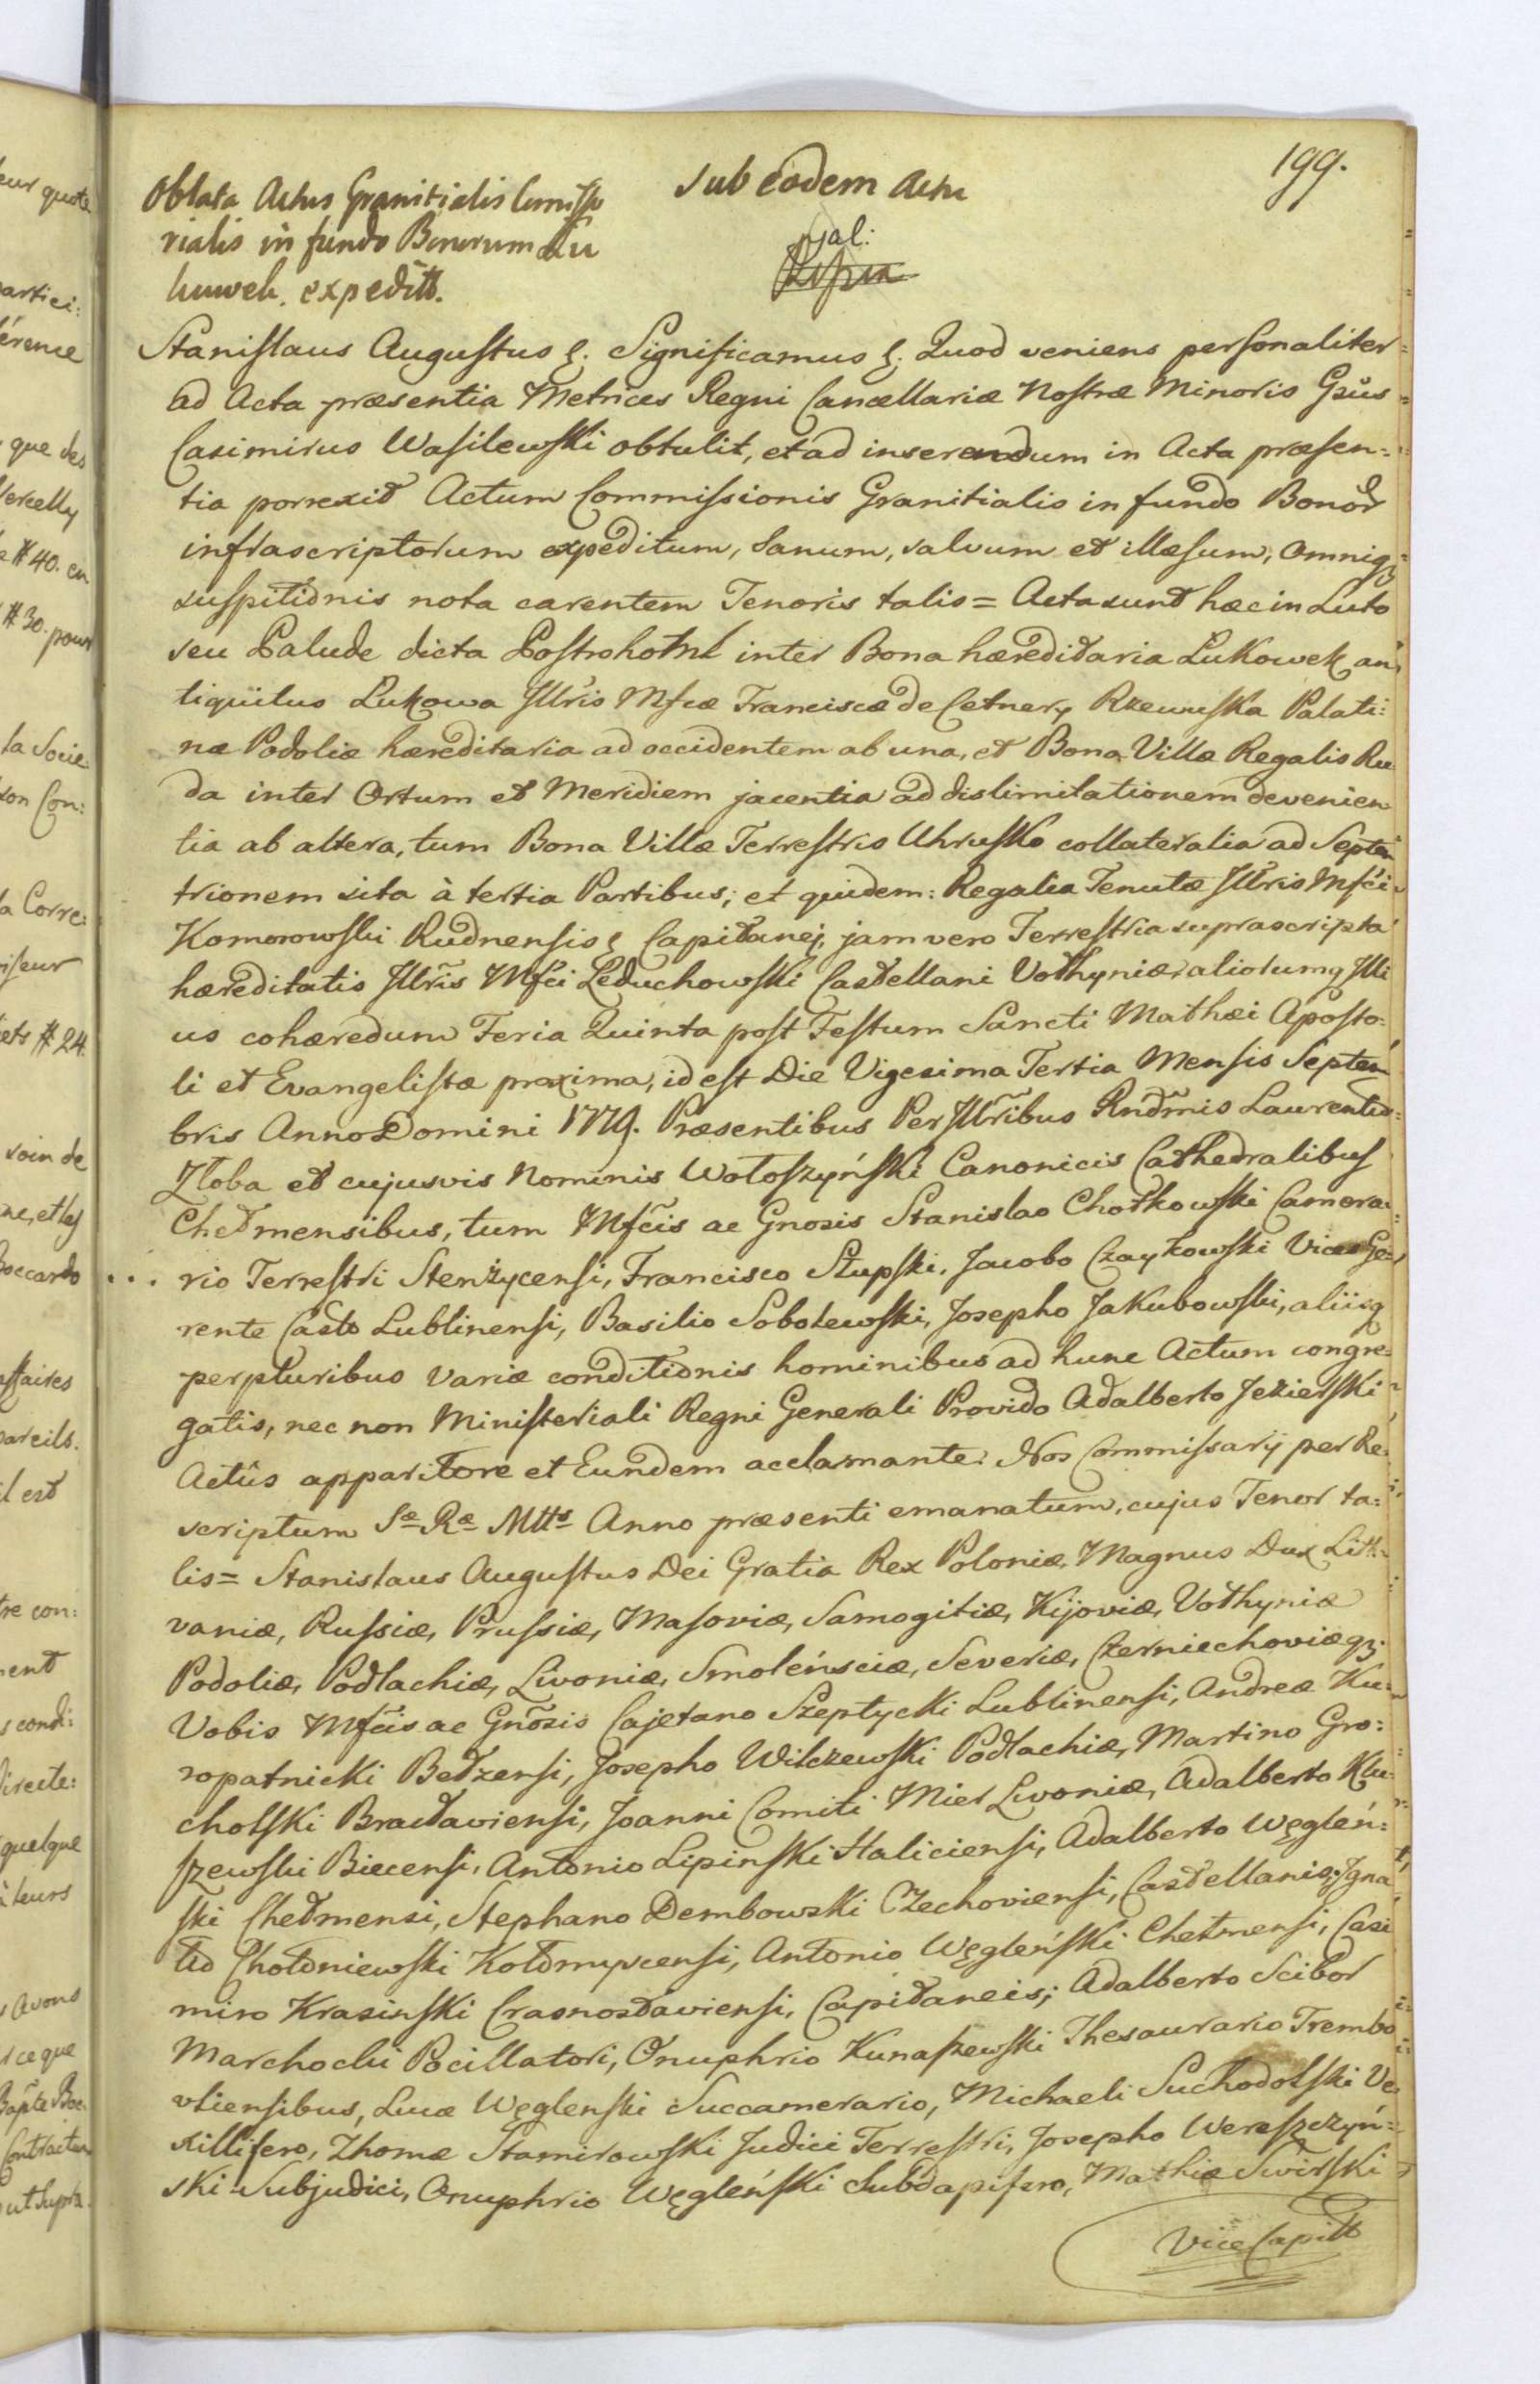 199.
Sub eodem Actu
Oblata Actus Granitialis Comisso
rialis in fundo Bonorum Lu
kuwek. expeditt.
Stanislaus Augustus &. Significamus &. Quod veniens personaliter
ad Acta præsentia Metrices Regni Cancellariæ Nostræ Minoris Gsũs
Casimirus Wasilewski obtulit, et ad inserendum in Acta præsen=
tia porrexit Actum Commissionis Granitialis in fundo Bonor
infrascriptorum expeditum, sanum, salvum et illæsum, omniq3
suspitionis nota carentem Tenoris talis = Acta sunt hæc in Luto
seu Palude dicta Postrohotnl inter Bona hæreditaria Lukowek an
tiquitus Lukowa Jllris Mfcæ Franciscæ de Cetnery Rzewuska Palati=
næ Podoliæ hæreditaria ad occidentem ab una, et Bona Villæ Regalis Ru
da inter Ortum et Meridiem jacentia ad dislimitationem devenien
tia ab altera, tum Bona Villæ Terrestris Uhrusko collateralia ad Septen
trionem sita à tertia Partibus; et quidem: Regalia Tenutæ Jllris Mfci
Komorowski Rudnensis & Capitanej, jam vero Terrestria suprascripta
hæreditatis Jllris Mfci Leduchowski Castellani Vołhyniæ aliorumq Jlli
us cohæredum Feria Quinta post Festum Sancti Mathæi Aposto=
li et Evangelistæ proxima, id est Die Vigesima Tertia Mensis Septem
bris Anno Domini 1779. Præsentibus PerJllribus Rndmis Laurentio
Złoba et cujusvis Nominis Wołoszyński Canonicis Cathedralibus
Chełmensibus, tum Mfcis ac Gnosis Stanislao Chołkowski Camera=
rio Terrestri Stenżycensi, Francisco Słupski, Jacobo Czaykowski Vices Ge=
rente Castr Lublinensi, Basilio Sobolewski, Josepho Jakubowski, aliisq
perpluribus variæ conditionis hominibus ad hunc Actum congre=
gatis, nec non Ministeriali Regni Generali Provido Adalberto Jezierski
Actûs apparitore et Eundem acclamante. Nos Commissarij per Re=
scriptum Sæ Ræ Mtts Anno præsenti emanatum, cujus Tenor ta=
lis = Stanislaus Augustus Dei Gratia Rex Poloniæ, Magnus Dux Lith
vaniæ, Russiæ, Prussiæ, Masoviæ, Samogitiæ, Kijoviæ, Vołhyniæ
Podoliæ, Podlachiæ, Livoniæ, Smolénsciæ, Severiæ, Czerniechoviæq3.
Vobis Mfcis ac Gnõsis Cajetano Szeptycki Lublinensi, Andreæ Ku=
ropatnicki Bełzensi, Josepho Wilczewski Podlachiæ, Martino Gro=
cholski Bracłaviensi, Joanni Comiti Mier Livoniæ, Adalberto Klu=
szewski Biecensi, Antonio Lipinski Haliciensi, Adalberto Węgleń=
ski Chełmensi, Stephano Dembowski Czechoviensi, Castellanis; Jgna
tio Chołoniewski Kołomycensi, Antonio Węgleński Chełmensi, Casi
miro Krasinski Crasnostaviensi, Capitaneis; Adalberto Scibor
Marchocki Pocillatori, Onuphrio Kunaszewski Thesaurario Trembo
vliensibus, Lucæ Węglenski Succamerario, Michaeli Suchodolski Ve
xillifero, Thomæ Stamirowski Judici Terrestri, Josepho Wereszczyń=
ski Subjudici, Onuphrio Węgleński Subdapifero, Mathiæ Swirski
Vice Capitt